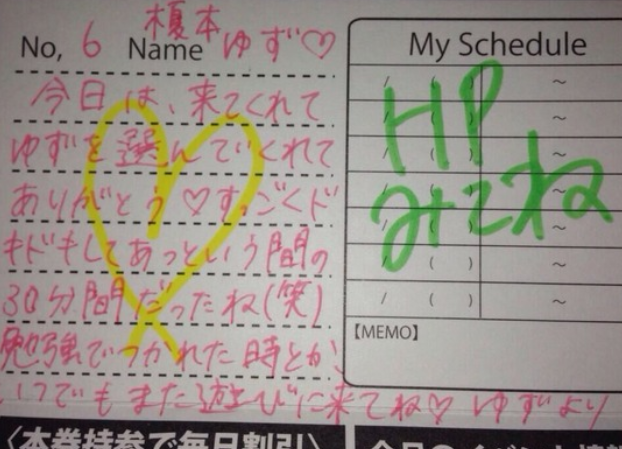 No, 6 Name 榎本ゆず♡
今日は、来てくれて
ゆずを選んでくれて
ありがとう♡すっごくド
キドキしてあっという間の
30分間だったね(笑)
勉強でつかれた時とか、
いつでもまた遊びに来てね♡ ゆずより
My Schedule
/ ( ) ~
/ ( ) ~
/ ( ) ~
/ ( ) ~
/ ( ) ~
/ ( ) ~
/ ( ) ~
HP
みてね
【MEMO】
〈本券持参で毎日割引〉
今月のイベント情報